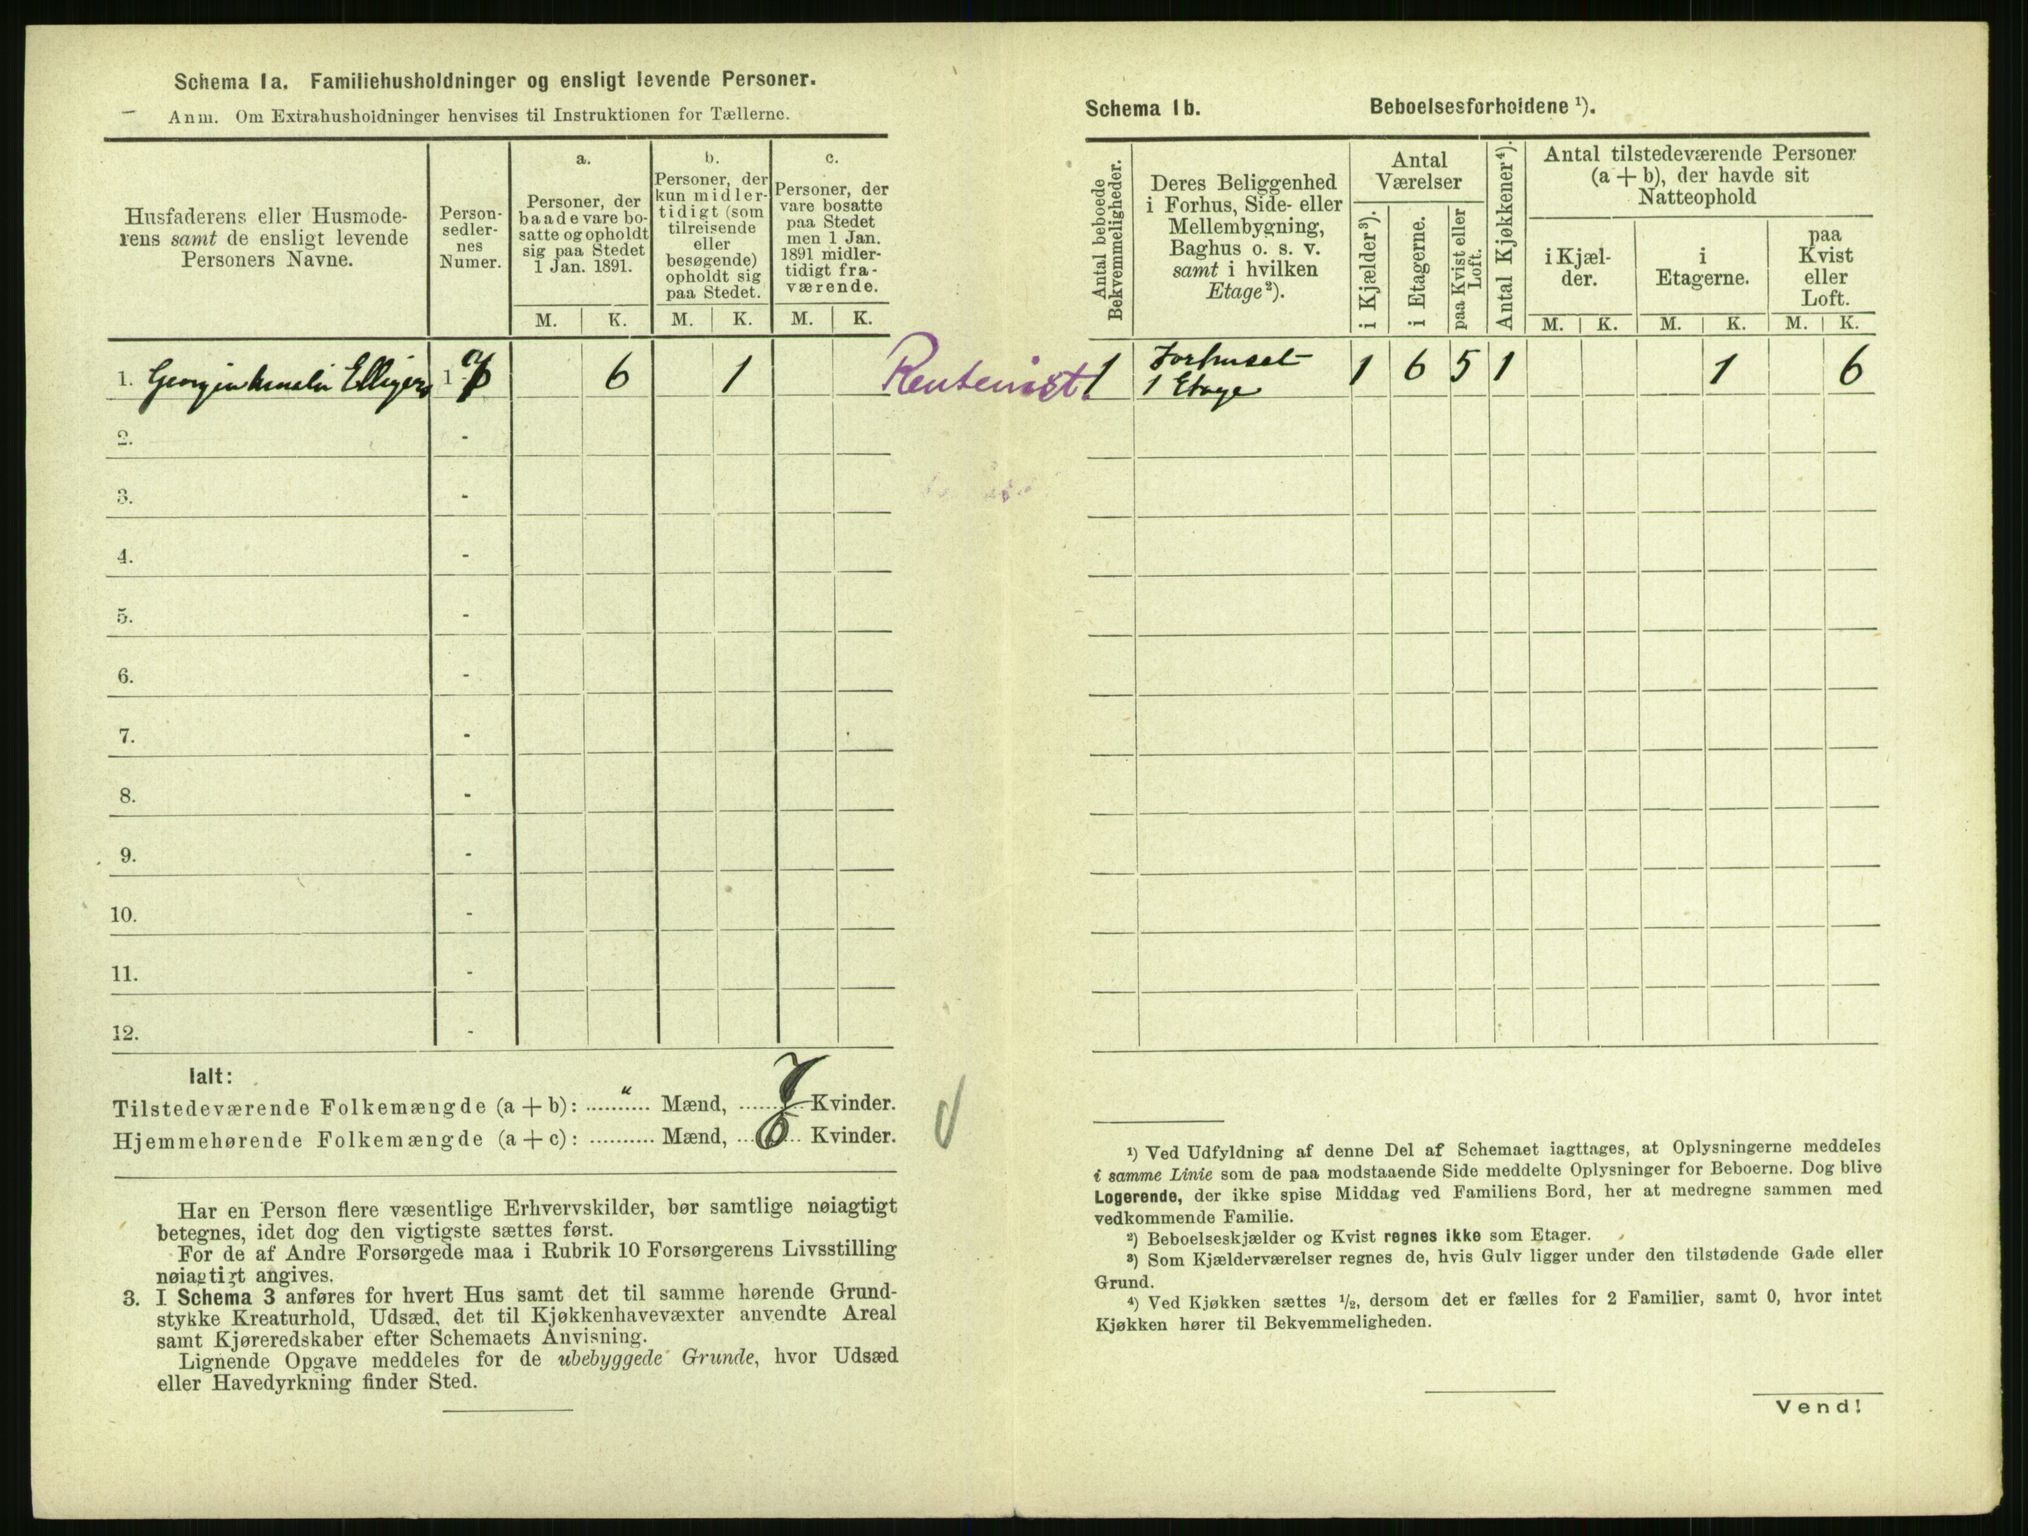 Schema 1a. Familiehusholdninger og ensligt levende Personer.
Anm. Om Extrahusholdninger henvises til Instruktionen for Tællerne.
Husfaderens eller Husmode-
rens samt de ensligt levende
Personers Navne.
Person-
sedler-
nes
Numer.
a.
Personer, der
baade vare bo-
satte og opholdt
sig paa Stedet
1 Jan. 1891.
b.
Personer, der
kun midler-
tidigt (som
tilreisende
eller
besøgende)
opholdt sig
paa Stedet.
c.
Personer, der
vare bosatte
paa Stedet
men 1 Jan.
1891 midler-
tidigt fra-
værende.
M. K. M. K. M. K.
1. 1 - 6 1 Rentenist
2. -
3. -
4. -
5. -
6. -
7. -
8. -
9. -
10. -
11. -
12. -
Ialt:
Tilstedeværende Folkemængde (a + b): " Mænd, 7 Kvinder.
Hjemmehørende Folkemængde (a + c): Mænd, 6 Kvinder.
Har en Person flere væsentlige Erhvervskilder, bør samtlige nøiagtigt
betegnes, idet dog den vigtigste sættes først.
For de af Andre Forsørgede maa i Rubrik 10 Forsørgerens Livsstilling
nøiagtigt angives.
3. I Schema 3 anføres for hvert Hus samt det til samme hørende Grund-
stykke Kreaturhold, Udsæd, det til Kjøkkenhavevæxter anvendte Areal
samt Kjøreredskaber efter Schemaets Anvisning.
Lignende Opgave meddeles for de ubebyggede Grunde, hvor Udsæd
eller Havedyrkning finder Sted.
Schema 1b. Beboelsesforholdene ¹).
Antal beboede
Bekvemmeligheder.
Deres Beliggenhed
i Forhus, Side- eller
Mellembygning,
Baghus o. s. v.
samt i hvilken
Etage²).
Antal
Værelser
i Kjælder³).
i Etagerne.
paa Kvist eller
Loft.
Antal Kjøkkener⁴).
Antal tilstedeværende Personer
(a + b), der havde sit
Natteophold
i Kjæl-
der.
i
Etagerne.
paa
Kvist
eller
Loft.
M. K. M. K. M. K.
1 Forhuset 1 6 5 1 1 6
1 Etage
¹) Ved Udfyldning af denne Del af Schemaet iagttages, at Oplysningerne meddeles
i samme Linie som de paa modstaaende Side meddelte Oplysninger for Beboerne. Dog blive
Logerende, der ikke spise Middag ved Familiens Bord, her at medregne sammen med
vedkommende Familie.
²) Beboelseskjælder og Kvist regnes ikke som Etager.
³) Som Kjælderværelser regnes de, hvis Gulv ligger under den tilstødende Gade eller
Grund.
⁴) Ved Kjøkken sættes ½, dersom det er fælles for 2 Familier, samt 0, hvor intet
Kjøkken hører til Bekvemmeligheden.
Vend!